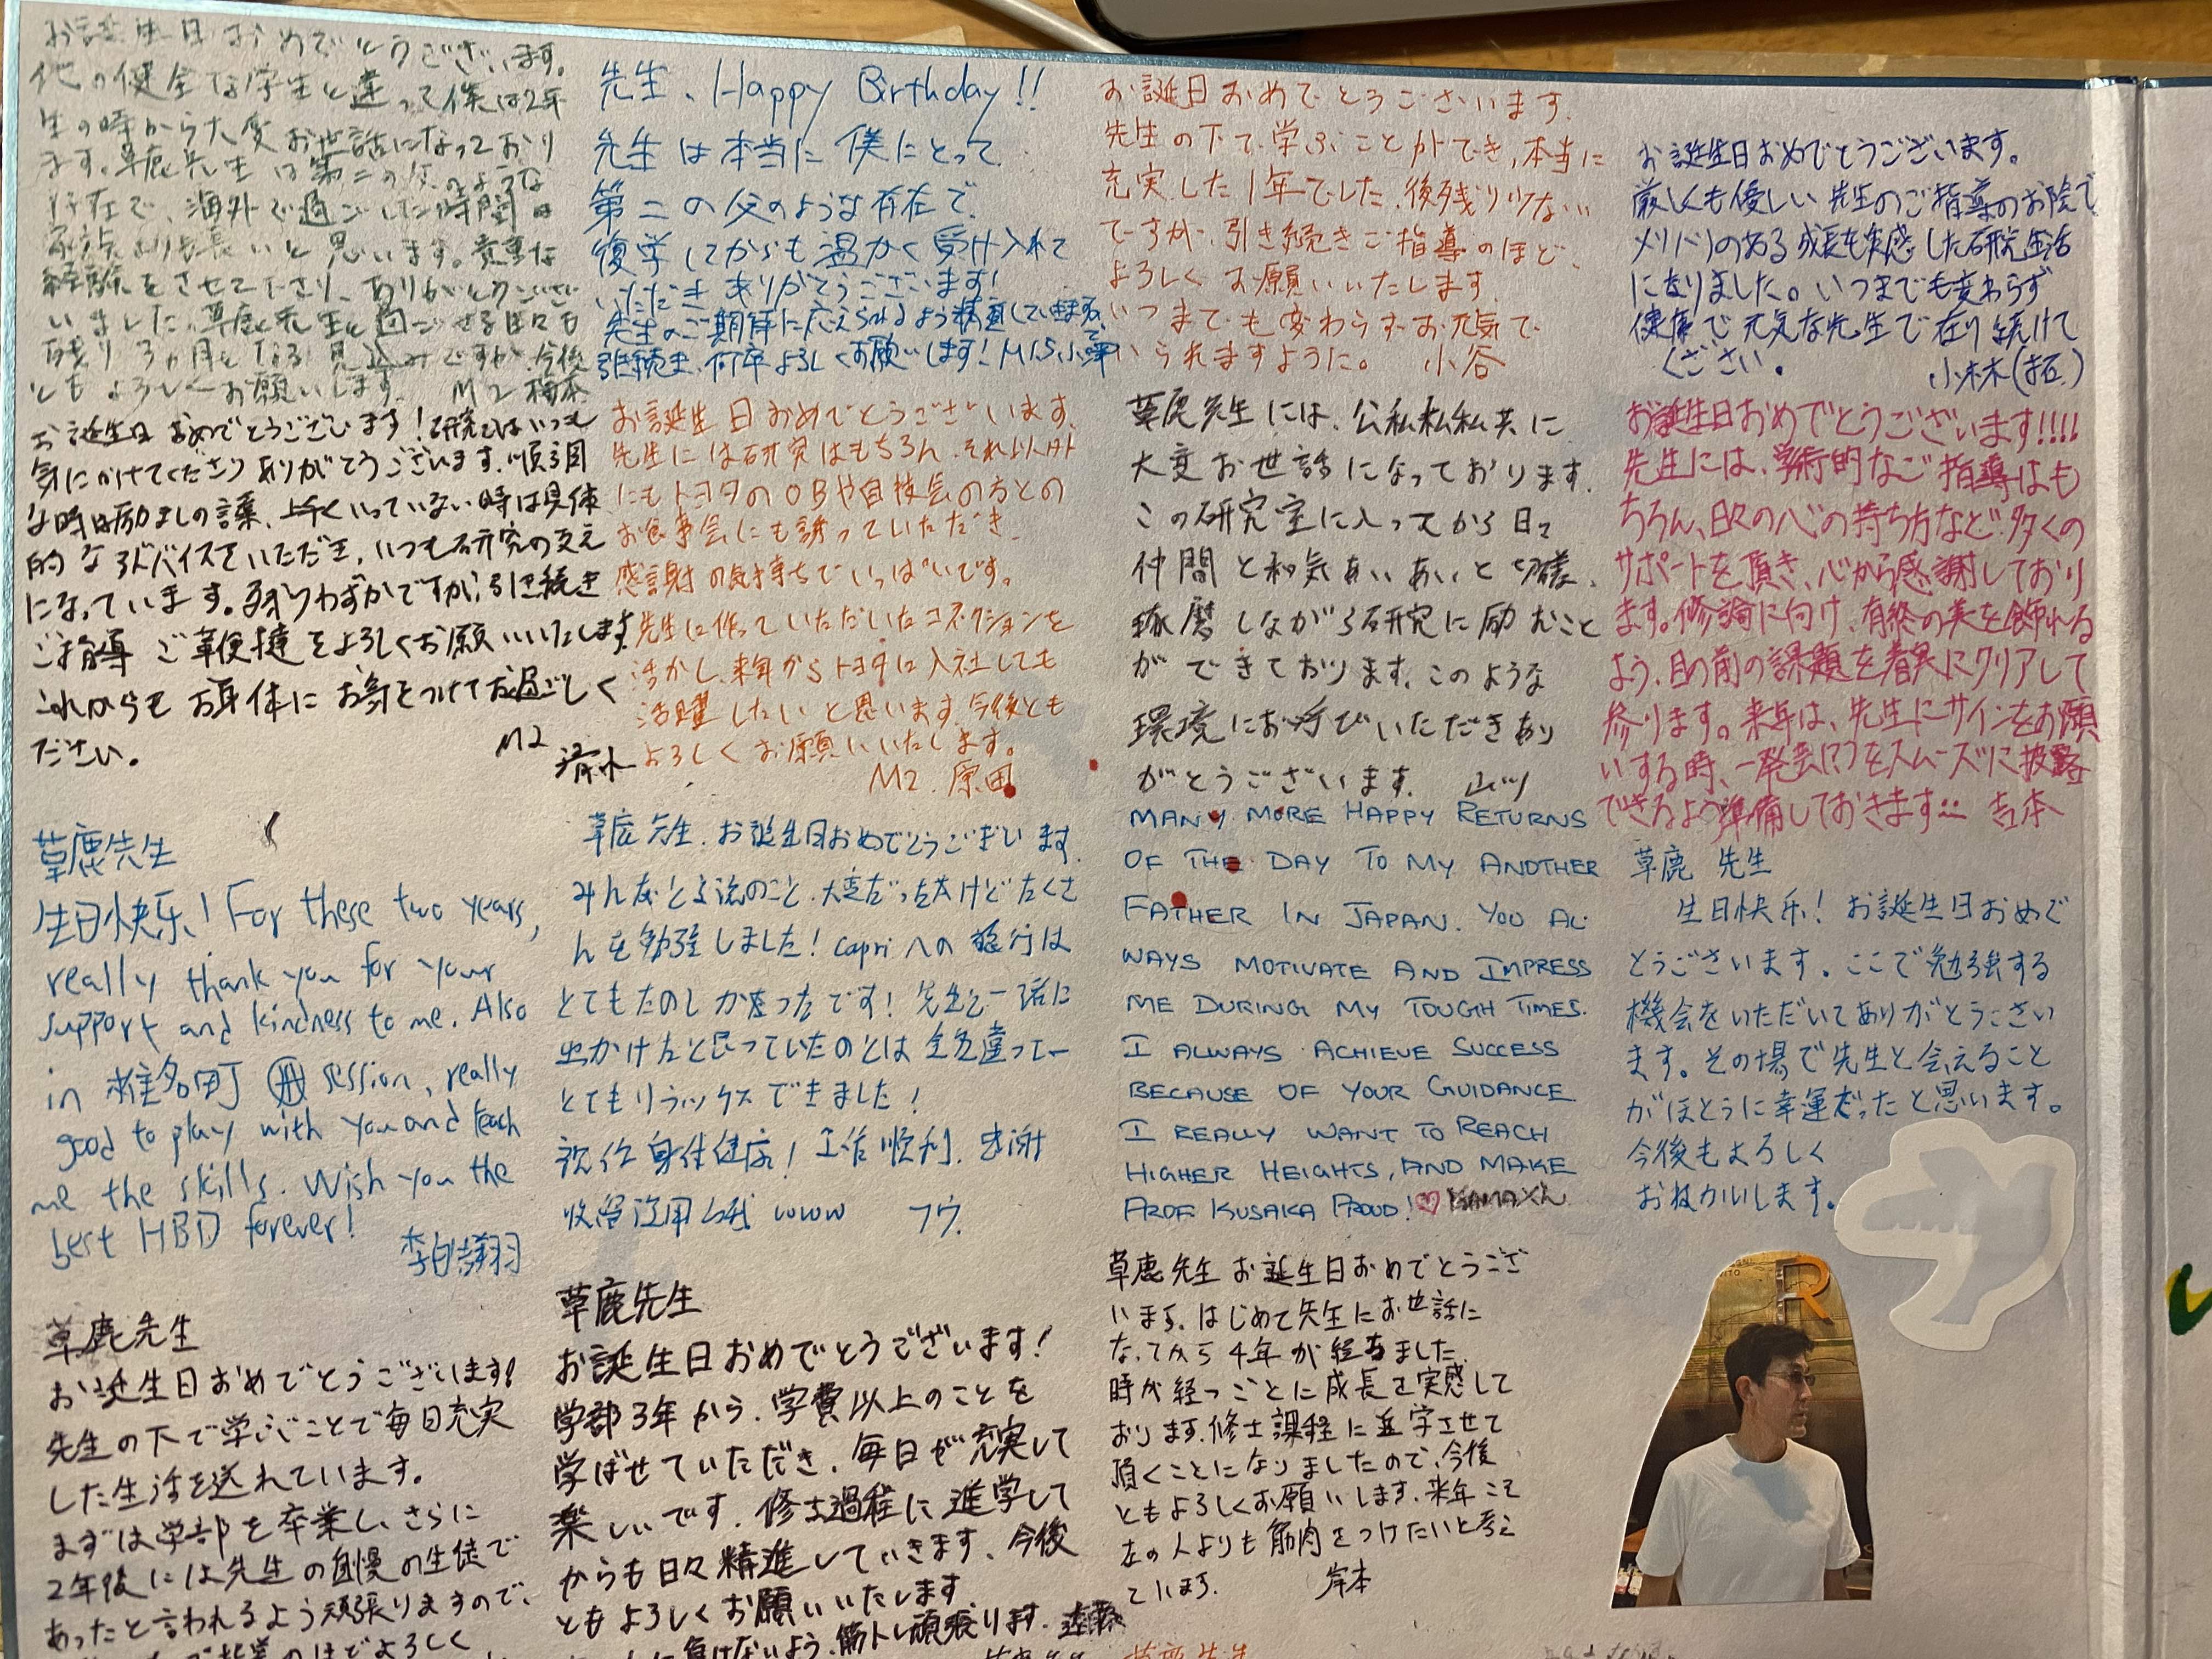 お誕生日おめでとうございます。
他の健全な学生と違って僕は2年
生の時から大変お世話になっており
ます。草鹿先生は第二の父のような
存在で、海外で過ごした時間は
家族よりも長いと思います。貴重な
経験をさせて下さり、ありがとうござい
いました。草鹿先生と過ごせる日々も
残り3ヵ月となる見込みですが、今後
ともよろしくお願いします。 M2 梅本
お誕生日おめでとうございます！研究ではいつも
気にかけてくださりありがとうございます。順調
な時は励ましの言葉、上手くいっていない時は具体
的なアドバイスをいただき、いつも研究の支え
になっています。残りわずかですが、引き続き
ご指導ご鞭撻をよろしくお願いいたします。
これからもお身体にお気をつけてお過ごしく
ださい。 M2 清水
先生、Happy Birthday!!
先生は本当に僕にとって
第二の父のような存在で、
復学してからも温かく受け入れて
いただきありがとうございます！
先生のご期待に応えられるよう精進していきます
引続き、何卒よろしくお願いします！M1.5 小澤
お誕生日おめでとうございます。
先生には研究はもちろん、それ以外
にもトヨタのOBや自技会の方との
お食事会にも誘っていただき
感謝の気持ちでいっぱいです。
先生に作っていただいたコネクションを
活かし、来年からトヨタに入社しても
活躍したいと思います。今後とも
よろしくお願いいたします。
M2. 原田
お誕生日おめでとうございます。
先生の下で学ぶことができ、本当に
充実した1年でした。後残り少ない
ですが、引き続きご指導のほど、
よろしくお願いいたします。
いつまでも変わらずお元気で
いられますように。 小谷
草鹿先生には、公私私私共に
大変お世話になっております。
この研究室に入ってから日々
仲間と和気あいあいと切磋
琢磨しながら研究に励むこと
ができております。このような
環境にお呼びいただきあり
がとうございます。
お誕生日おめでとうございます。
厳しくも優しい先生のご指導のお陰で
メリハリのある成長を実感した研究生活
になりました。いつまでも変わらず
健康で元気な先生で在り続けて
ください。 小林(拓)
お誕生日おめでとうございます!!!!
先生には、学術的なご指導はも
ちろん、日々の心の持ち方など多くの
サポートを頂き、心から感謝しており
ます。修論に向け、有終の美を飾れる
よう、目の前の課題を着実にクリアして
参ります。来年は、先生にサインをお願
いする時、一発芸(?)をスムーズに披露
できるよう準備しておきます… 吉本
草鹿先生
生日快乐！For these two years,
really thank you for your
support and kindness to me. Also
in 椎名町 session, really
good to play with you and teach
me the skills. Wish you the
best HBD forever!
草鹿先生、お誕生日おめでとうございます。
みんなと交流のこと、大変だったけどたくさ
んを勉強しました！Capriへの旅行は
とてもたのしかったです！先生と一緒に
出かけたと思っていたのとは全色違って
とてもリラックスできました！
祝你身体健康！工作顺利，感谢
收留没用的我 wwww フウ
MANY MORE HAPPY RETURNS
OF THE DAY TO MY ANOTHER
FATHER IN JAPAN. YOU AL-
WAYS MOTIVATE AND IMPRESS
ME DURING MY TOUGH TIMES.
I ALWAYS ACHIEVE SUCCESS
BECAUSE OF YOUR GUIDANCE
I REALLY WANT TO REACH
HIGHER HEIGHTS, AND MAKE
PROF. KUSAKA PROUD! ♡
草鹿 先生
生日快乐！お誕生日おめで
とうございます。ここで勉強する
機会をいただいてありがとうござい
ます。その場で先生と会えること
がほとうに幸運だったと思います。
今後もよろしく
おねがいします。
草鹿先生
お誕生日おめでとうございます！
先生の下で学ぶことで毎日充実
した生活を送れています。
まずは学部を卒業し、さらに
2年後には先生の自慢の生徒で
あったと言われるよう頑張りますので、
のほどよろしく
草鹿先生
お誕生日おめでとうございます！
学部3年から、学費以上のことを
学ばせていただき、毎日が充実して
楽しいです。修士過程に進学して
からも日々精進していきます、今後
ともよろしくお願いいたします
に負けないよう、筋トレ頑張ります。
草鹿先生お誕生日おめでとうござ
います。はじめて先生にお世話に
なってから4年が経ちました。
時が経つごとに成長を実感して
おります。修士課程に進学させて
頂くことになりましたので、今後
ともよろしくお願いします。来年こそ
左の人よりも筋肉をつけたいと考え
ています。 岸本
草鹿先生
R